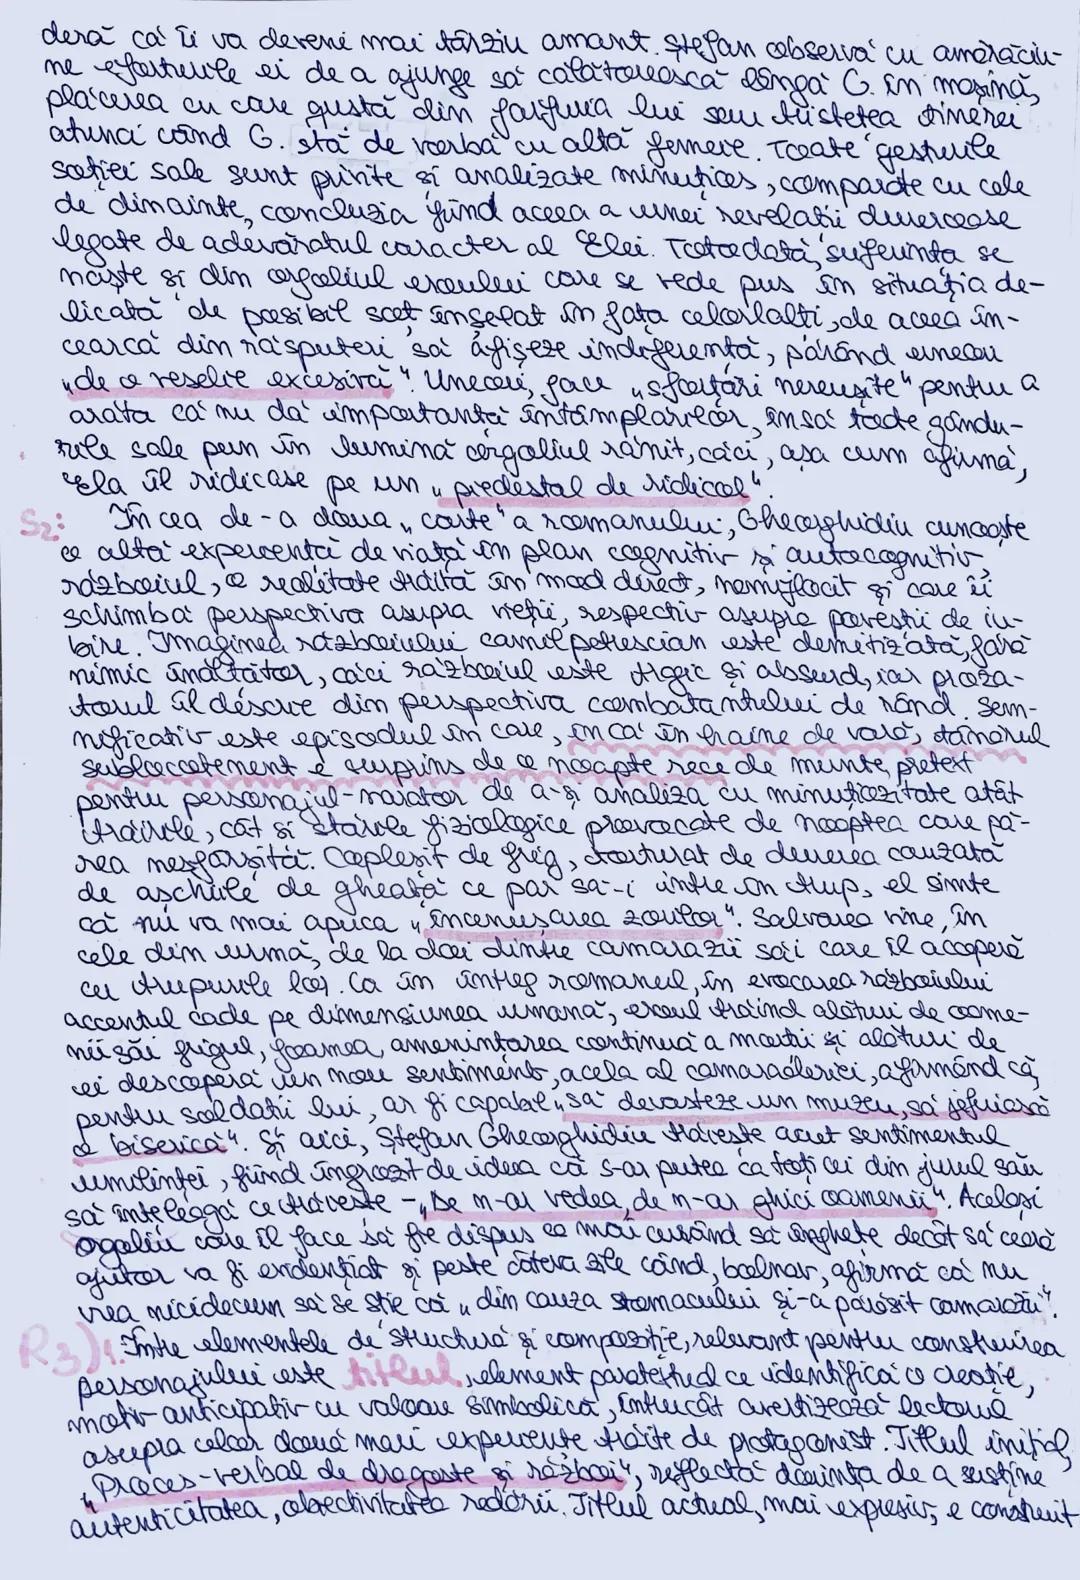 deră că îi va deveni mai târziu amant. Ștefan observă cu amărăciu-
ne eforturile ei de a ajunge să călătorească lângă G. în mașină,
plăcerea cu care gustă din farfuria lui sau tristețea tinerei
atunci când G. stă de vorbă cu altă femeie. Toate gesturile
soției sale sunt privite și analizate minuțios, comparate cu cele
de dinainte, concluzia fiind aceea a unei revelații dureroase
legate de adevăratul caracter al Elei. Totodată, suferința se
naște și din orgoliul eroului care se vede pus în situația de-
licată de posibil soț înșelat în fața celorlalți, de aceea în-
cearcă din răsputeri să afișeze indiferență, părând uneori
„de o veselie excesivă". Uneori, face „sforțări nereușite" pentru a
arăta că nu dă importanță întâmplărilor, însă toate gându-
rile sale pun în lumină orgoliul rănit, căci, așa cum afirmă,
Ela îl ridicase pe un „piedestal de ridicol".
S2: În cea de-a doua „carte" a romanului, Gheorghidiu cunoaște
o altă experiență de viață în plan cognitiv și autocognitiv,
războiul, o realitate trăită în mod direct, nemijlocit și care îi
schimbă perspectiva asupra vieții, respectiv asupra poveștii de iu-
bire. Imaginea războiului camilpetrescian este demitizată, fără
nimic înălțător, căci războiul este tragic și absurd, iar proza-
torul îl descrie din perspectiva combatantului de rând. Sem-
nificativ este episodul în care, încă în haine de vară, tânărul
sublocotenent e surprins de o noapte rece de munte, pretext
pentru personajul-narator de a-și analiza cu minuțiozitate atât
trăirile, cât și stările fiziologice provocate de noaptea care pă-
rea nesfârșită. Copleșit de frig, torturat de durerea cauzată
de așchiile de gheață ce par să-i intre în trup, el simte
că nu va mai apuca „încenușarea zorilor". Salvarea vine, în
cele din urmă, de la doi dintre camarazii săi care îl acoperă
cu trupurile lor. Ca în întreg romanul, în evocarea războiului
accentul cade pe dimensiunea umană, eroul trăind alături de oame-
nii săi frigul, foamea, amenințarea continuă a morții și alături de
ei descoperă un nou sentiment, acela al camaraderiei, afirmând că,
pentru soldații lui, ar fi capabil „să devasteze un muzeu, să jefuiască
o biserică". Și aici, Ștefan Gheorghidiu trăiește acut sentimentul
umilinței, fiind îngrozit de ideea că s-ar putea ca toți cei din jurul său
să înțeleagă ce trăiește – „De n-ar vedea, de n-ar ghici oamenii". Același
orgoliu care îl face să fie dispus mai curând să înghețe decât să ceară
ajutor va fi evidențiat și peste câteva zile când, bolnav, afirmă că nu
vrea nicidecum să se știe că „din cauza stomacului și-a părăsit camarazii".
R3) 1. Între elementele de structură și compoziție, relevant pentru construirea
personajului este titlul, element paratextual ce identifică o creație,
motiv anticipativ cu valoare simbolică, întrucât avertizează lectorul
asupra celor două mari experiențe trăite de protagonist. Titlul inițial,
„Proces-verbal de dragoste și război", reflectă dorința de a susține
autenticitatea, obiectivitatea redării. Titlul actual, mai expresiv, e construit